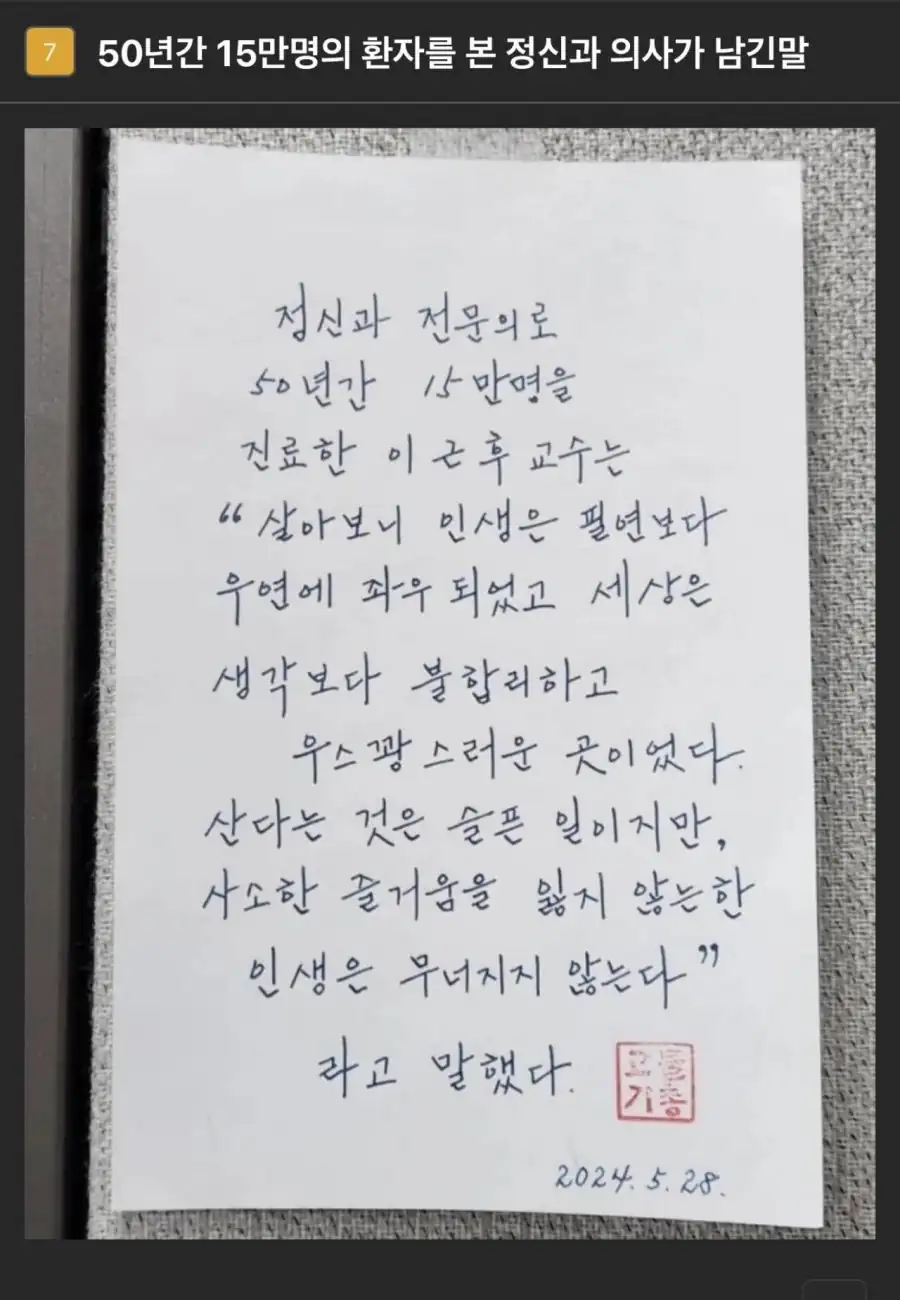 7 50년간 15만명의 환자를 본 정신과 의사가 남긴말
정신과 전문의로
50년간 15만명을
진료한 이근후 교수는
“살아보니 인생은 필연보다
우연에 좌우 되었고 세상은
생각보다 불합리하고
우스꽝스러운 곳이었다.
산다는 것은 슬픈 일이지만,
사소한 즐거움을 잃지 않는한
인생은 무너지지 않는다”
라고 말했다.
2024. 5. 28.